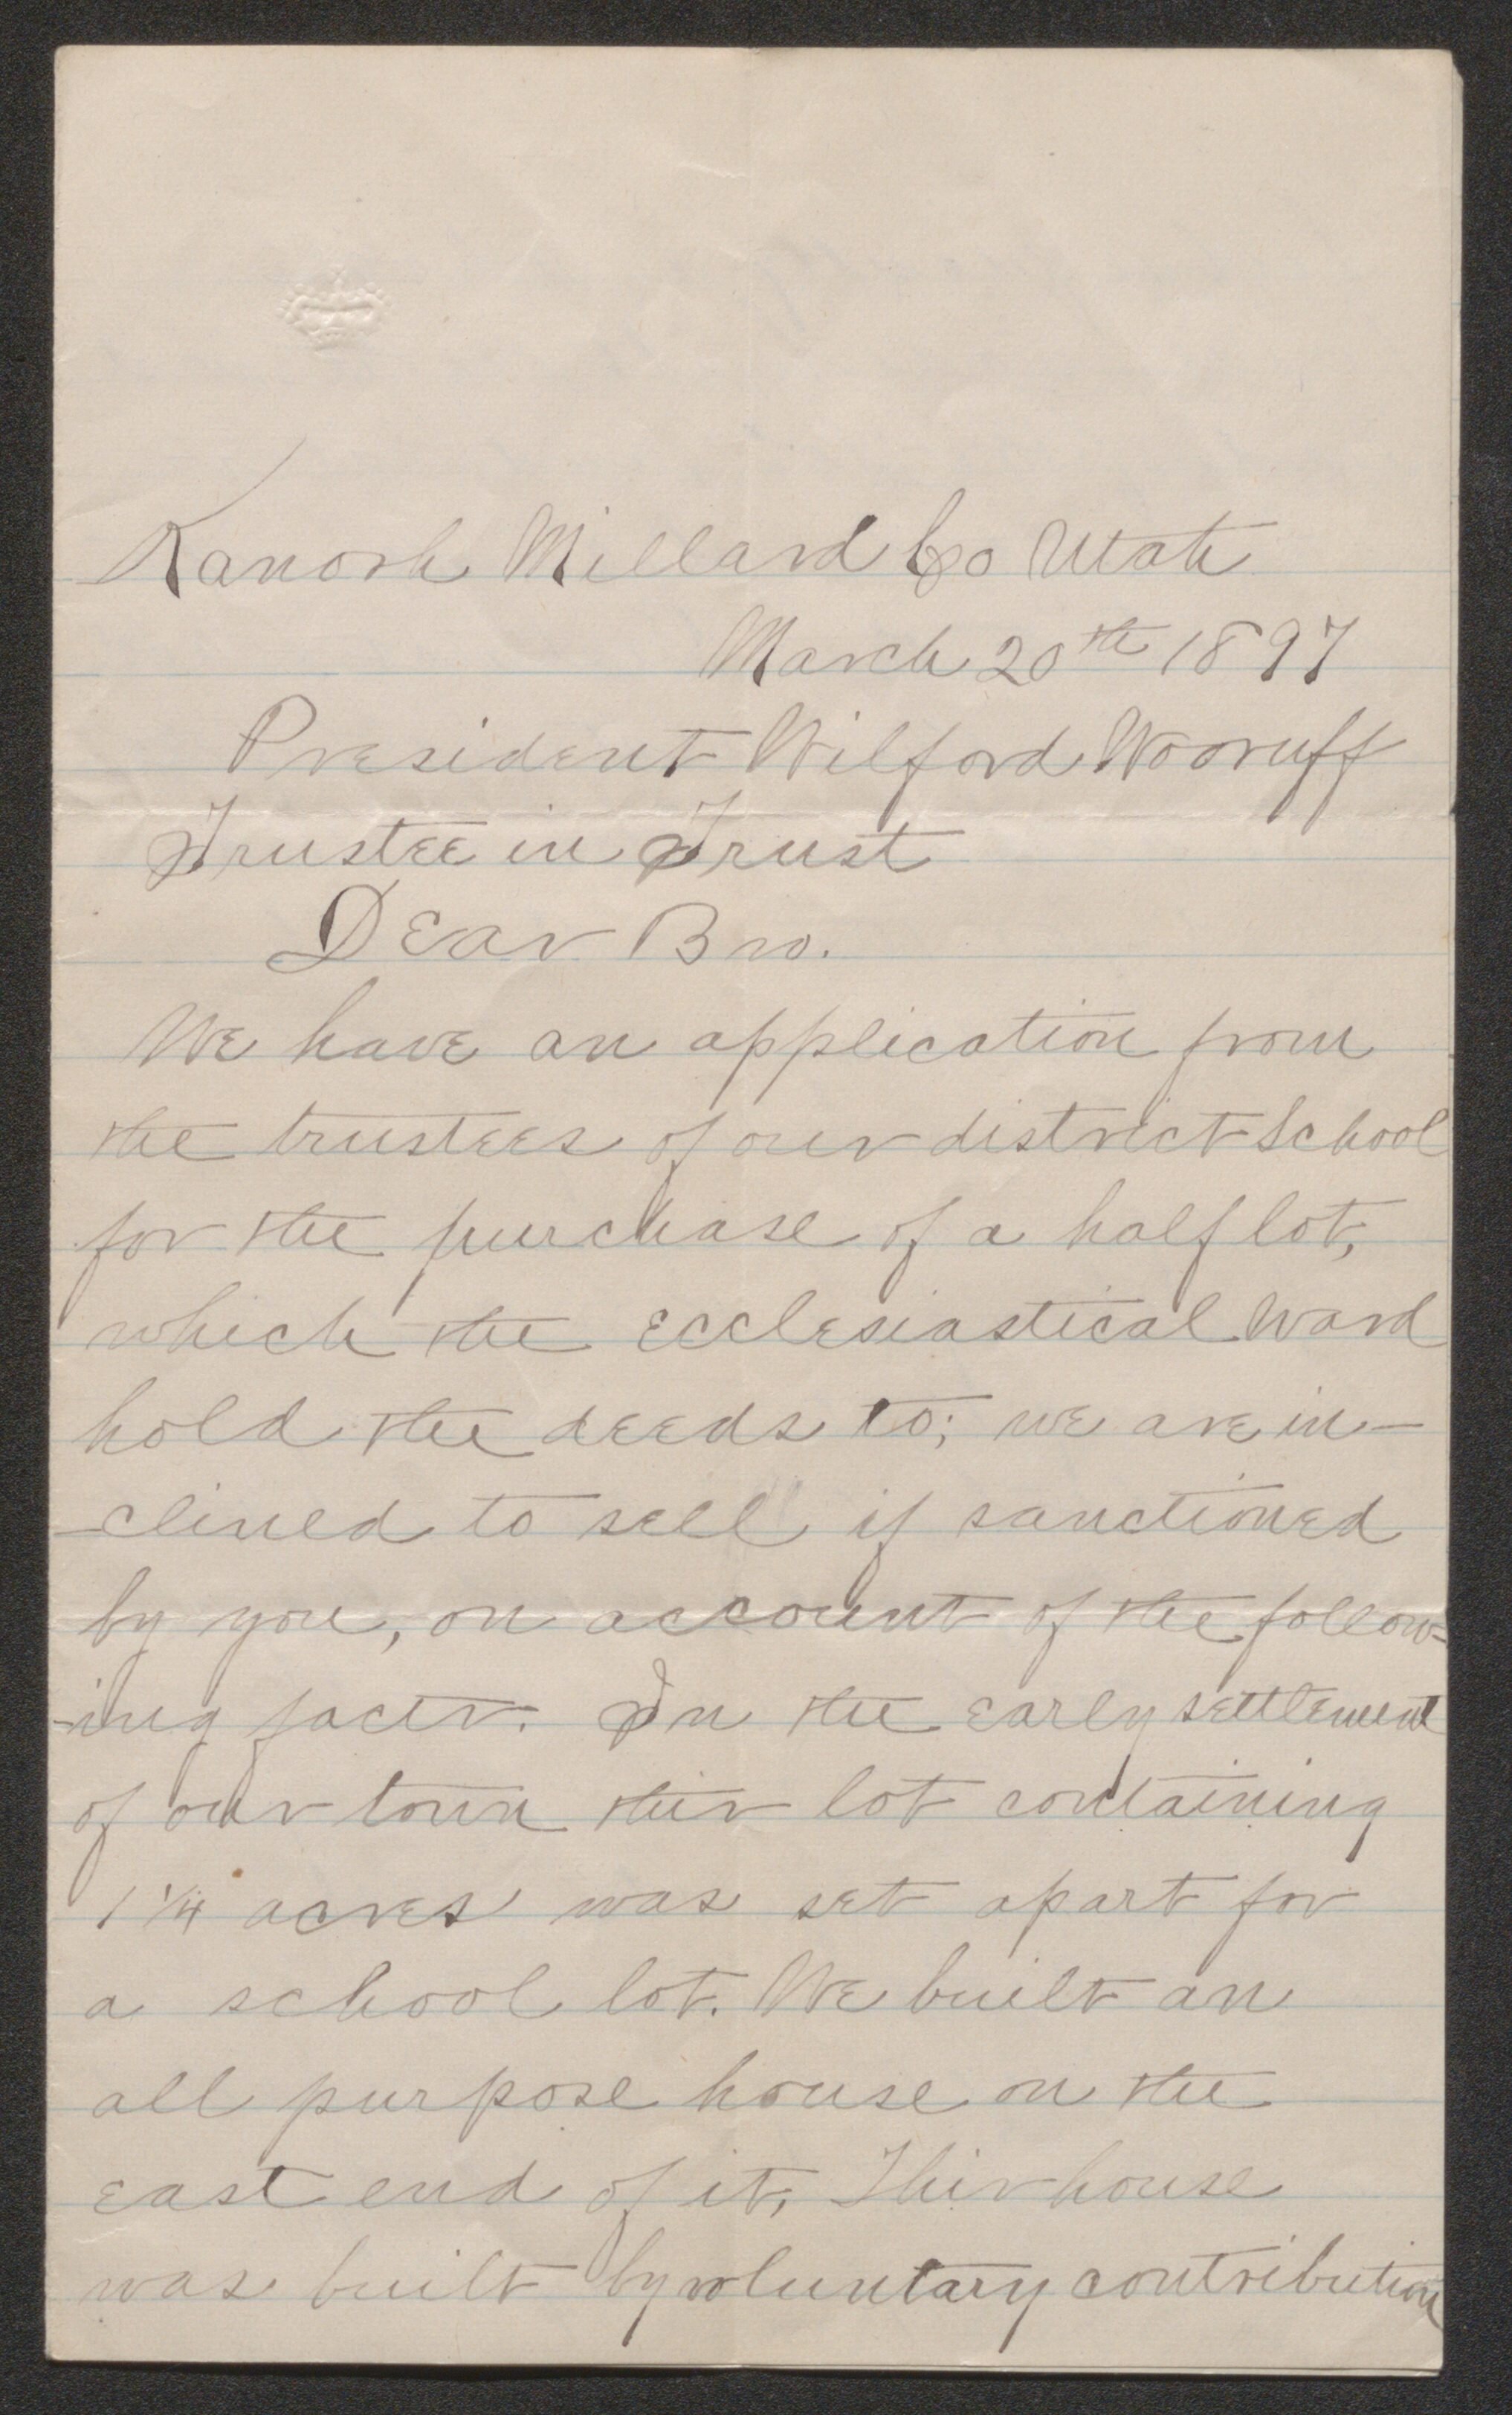 Kanosh Millard Co Utah
March 20th 1897
President Wilford Wooruff
Trustee in Trust
Dear Bro.
We have an application from
the trustees of our district School
for the purchase of a half lot,
which the ecclesiastical Ward
hold the deeds to; we are in-
-clined to sell if sanctioned
by you, on account of the follow=
-ing facts. In the early settlement
of our town this lot containing
1 1/4 acres was set apart for
a school lot. We built an
all purpose house on the
east end of it, This house
was built by voluntary contribution